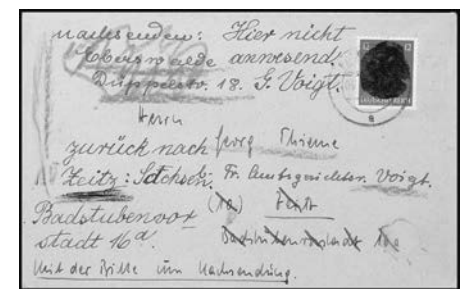 nachsenden: Hier nicht
Eberswalde anwesend.
Düppelstr. 18. G. Voigt.
12 12
DEUTSCHES REICH
Herrn
zurück nach Georg Thieme
Zeitz: Sachsen. Fr. Amtsgerichtsr. Voigt.
Badstubenvor
stadt 16a. Badstubenvorstadt 16a
Mit der Bitte um Nachsendung.